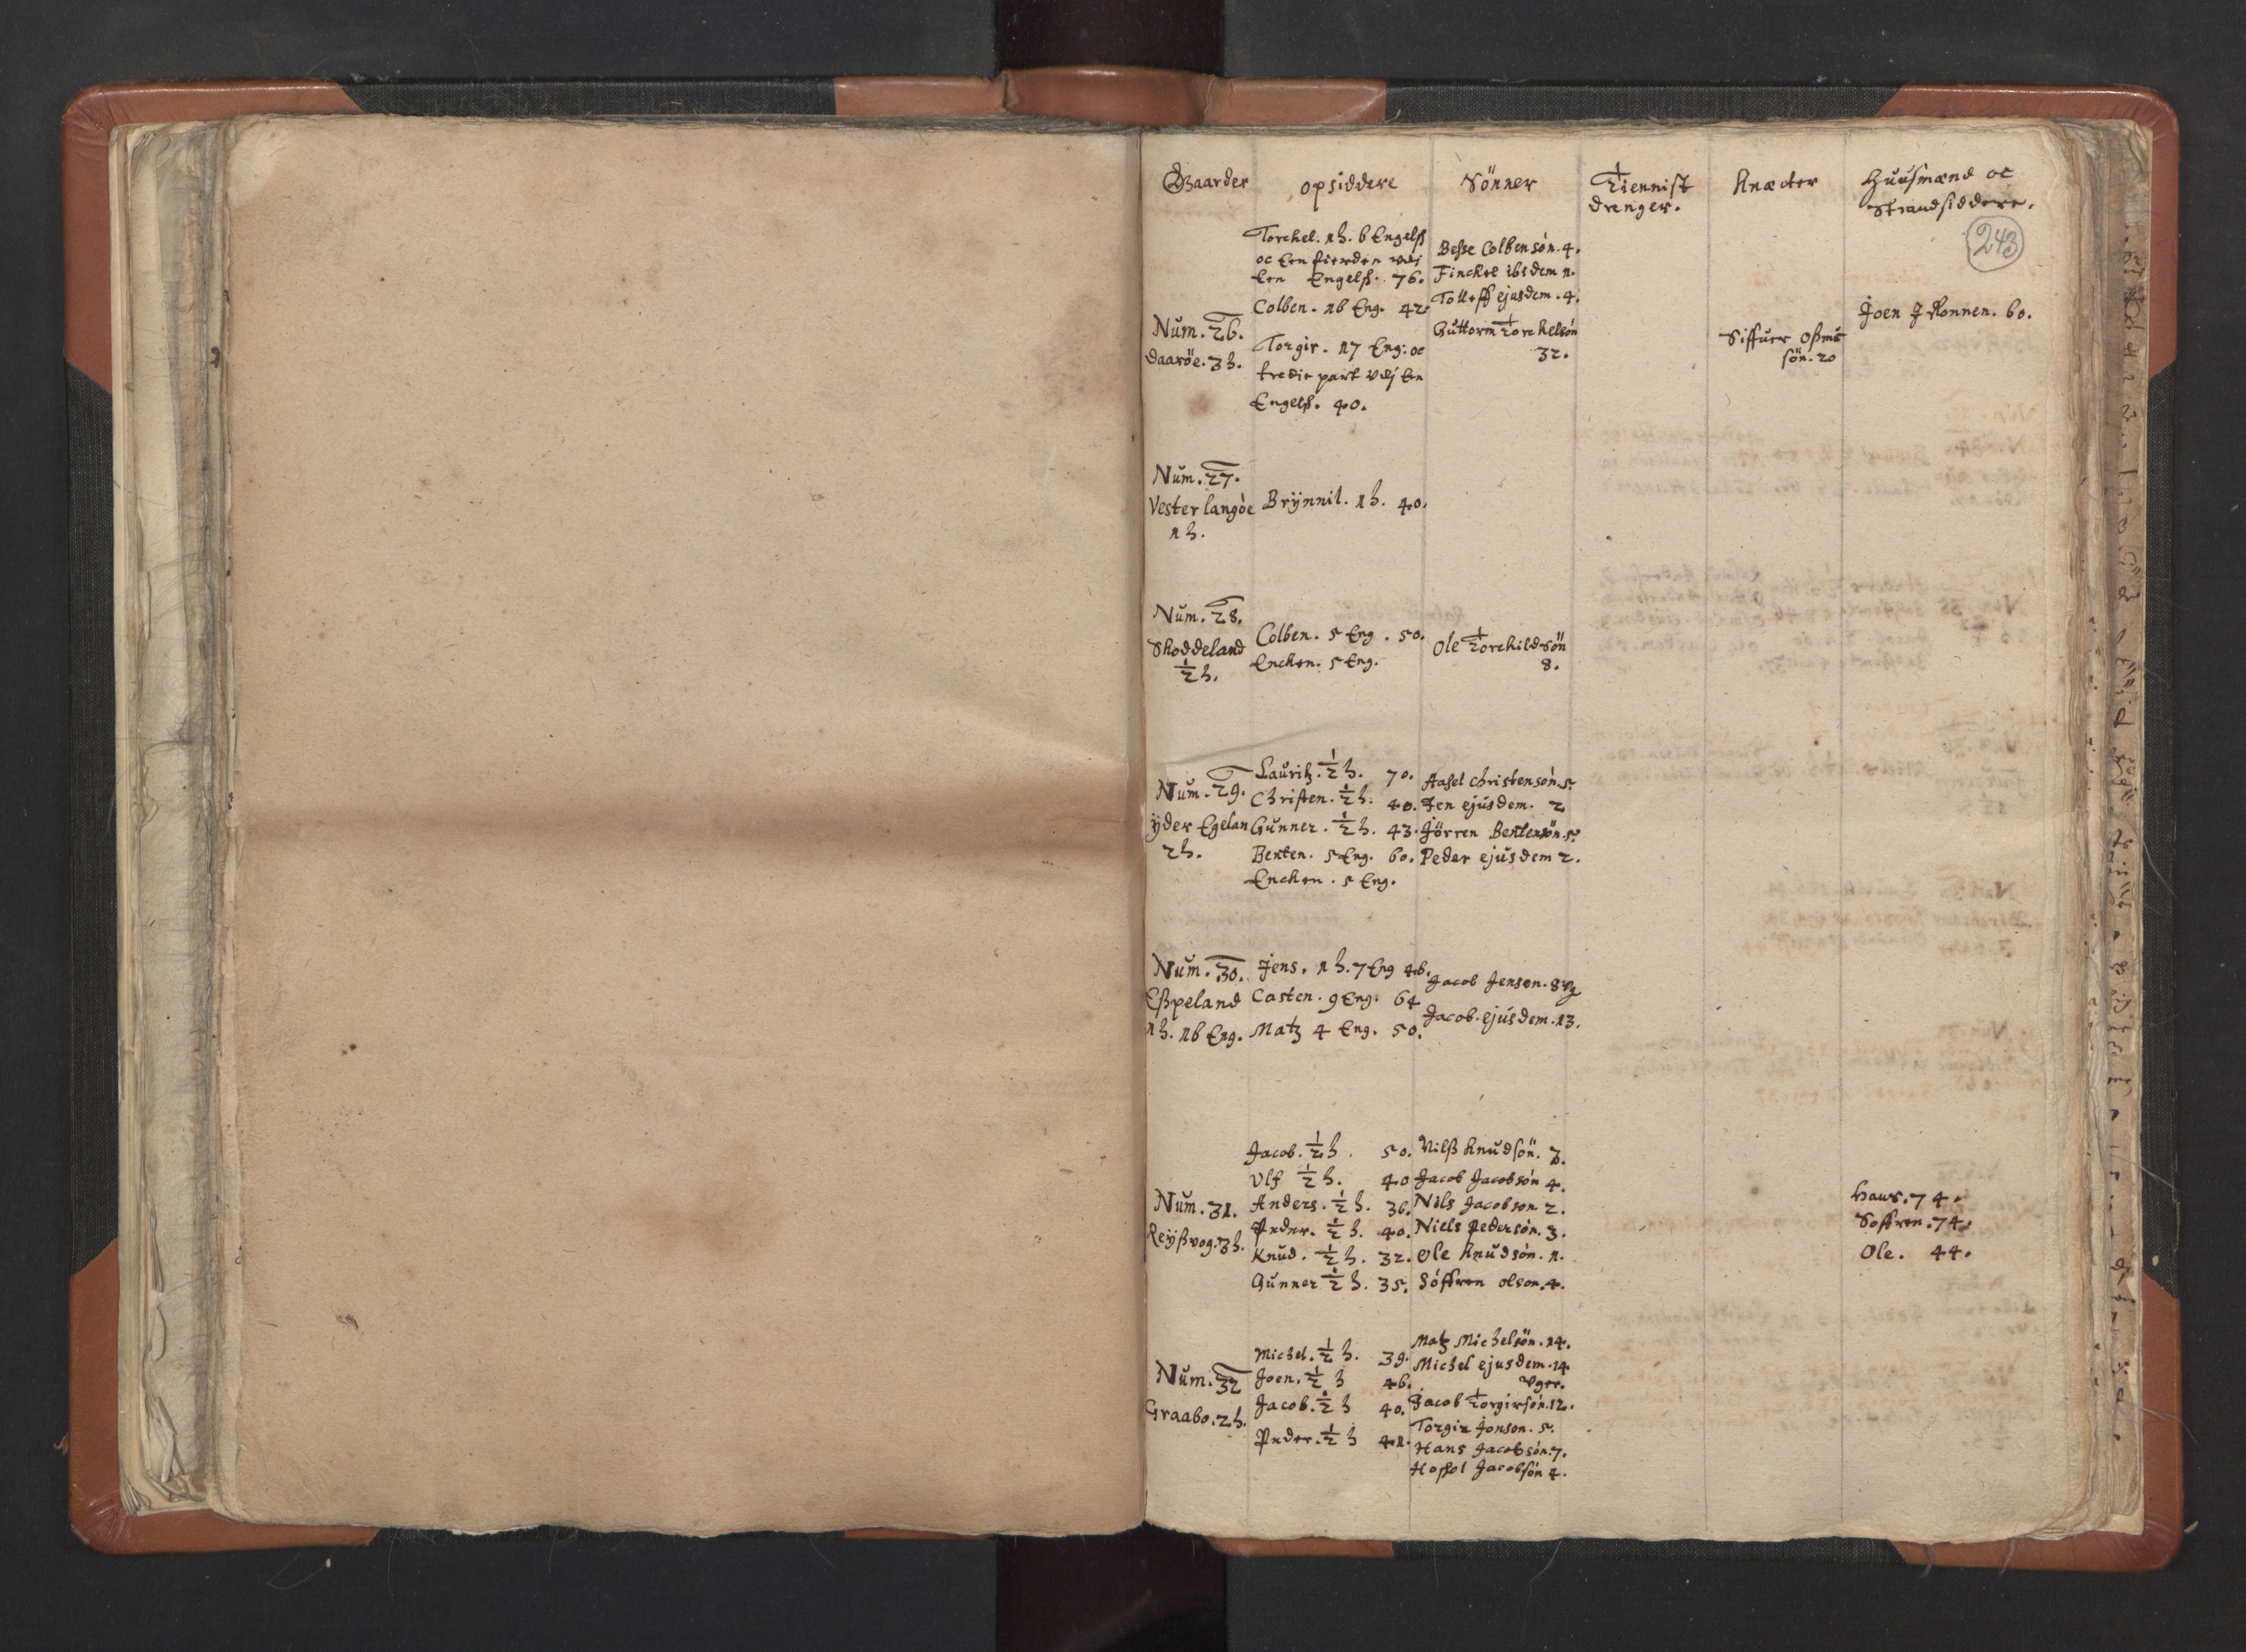 Gaarder opsiddere Sönner Tiennist Knæcter Huusmænd oc
drenger. Strandsiddere.
243
Torchel. 1 h. 6 Engelß
oc een fierden
een Engelß. 76.
Colben. 16 Eng. 42
Torgir. 17 Eng: oc
tredie part een
Engelß. 40.
Num. 26.
Daaröe. 3 h.
Besse Colbensön. 4.
Finckel ibidem 1.
Tolleff ejusdem. 4.
Guttorm Torchelsön
32.
Siffuer
sön. 20
Joen J Ronnen. 60.
Num. 27.
Vester langöe Brÿnnil. 1 h. 40.
1 h.
Num. 28.
Skoddeland
½ h.
Colben. 5 Eng. 50.
Encken. 5 Eng.
Ole Torchildsön
8.
Num. 29.
ÿder Egelan
2 h.
Lauritz. ½ h. 70.
Christen. ½ h. 40.
Gunner. ½ h. 43.
Benten. 5 Eng. 60.
Encken. 5 Eng.
Aasel Christensön. 5.
Jen ejusdem. 2
Jörren Bentensön. 5.
Peder ejusdem 2.
Num. 30.
Eßpeland
1 h. 16 Eng.
Jens. 1 h. 7 Eng 46.
Casten. 9 Eng. 64
Matz 4 Eng. 50.
Jacob Jenson. 8 vg
Jacob. ejusdem. 13.
Num. 31.
Reÿßvog. 3 h.
Jacob. ½ h. 50.
Ulf ½ h. 40
Anders. ½ h. 36.
Peder. ½ h. 40.
Knud. ½ h. 32.
Gunner ½ h. 35.
Nilß Knudsön. 3.
Jacob Jacobsön 4.
Nils Jacobson 2.
Niels Pedersön. 3.
Ole Knudsön. 1.
Söffren olson. 4.
Hans. 74.
Soffren. 74.
Ole. 44.
Num. 32
Graabo. 2 h.
Michel. ½ h. 39.
Joen. ½ h 46.
Jacob. ½ h 40.
Peder. ½ h 41.
Matz Michelsön. 14.
Michel ejusdem. 14
vger.
Jacob Torgirsön. 12.
Torgir Jonson. 5.
Hans Jacobsön. 7.
Jacobsön 4.